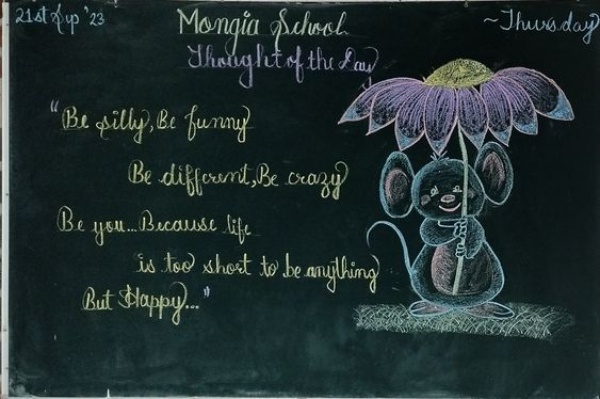 21st Sep '23
Mongia School
~Thursday
Thought of the Day
"Be silly, Be funny
Be different, Be crazy
Be you... Because life
is too short to be anything
But Happy..."